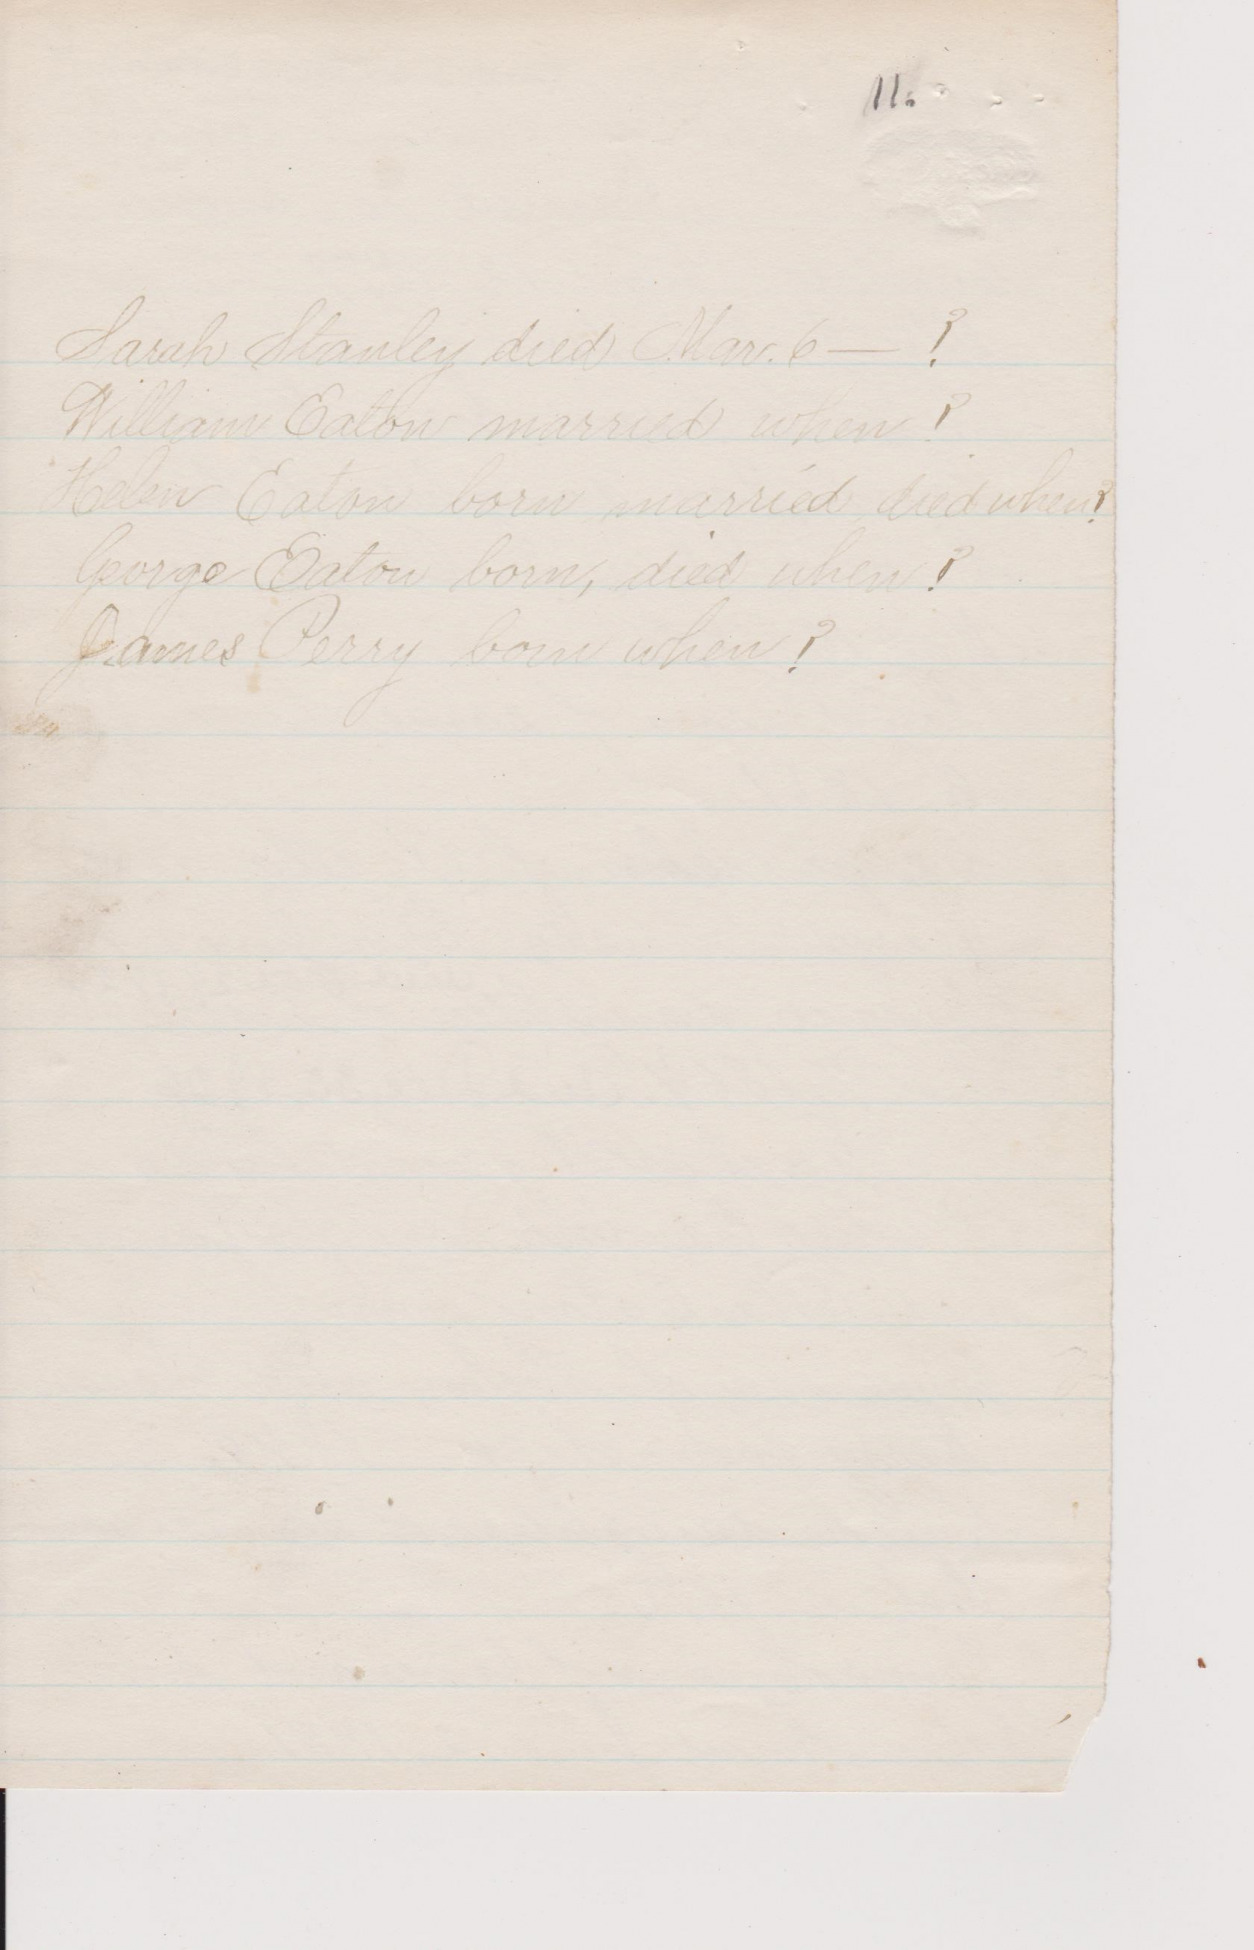 11.
Sarah Stanley died Mar. 6 — ?
William Eaton married when ?
Helen Eaton born married died when?
George Eaton born, died when ?
James Perry born when ?